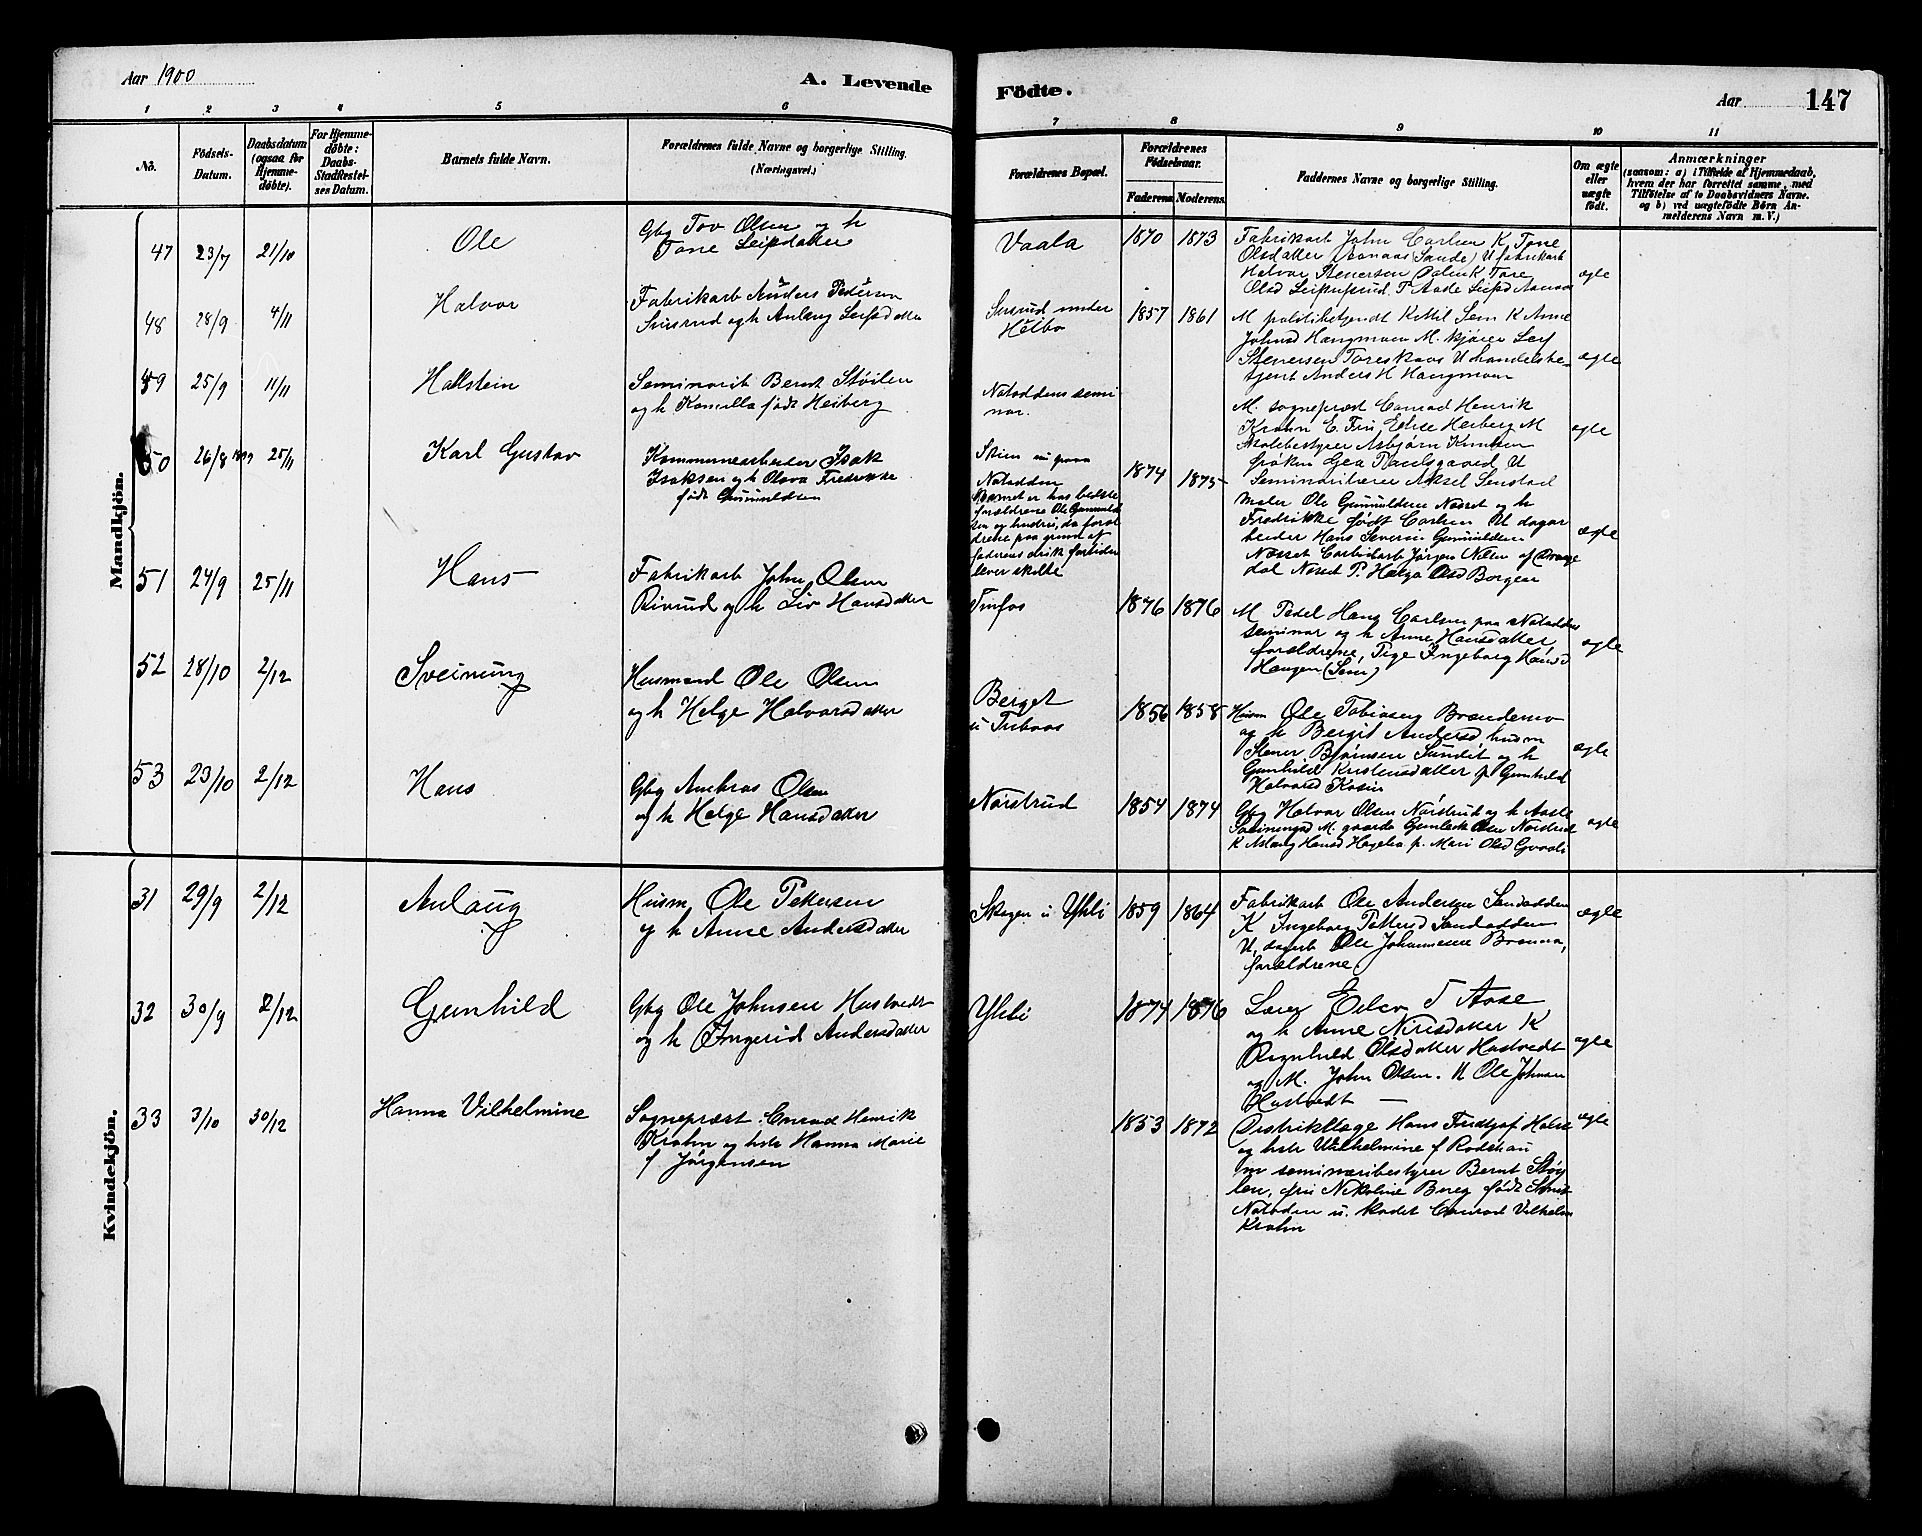 Aar 1900
A. Levende
Födte.
Aar
147
1 2 3 4 5 6 7 8 9 10 11
No.
Födsels-Datum.
Daabsdatum (ogsaa for Hjemme-döbte).
For Hjemme-döbte: Daabs-Stadfæstel-ses Datum.
Barnets fulde Navn.
Forældrenes fulde Navne og borgerlige Stilling.
(Næringsvei.)
Forældrenes Bopæl.
Forældrenes Födselsaar.
Faderens. Moderens.
Faddernes Navne og borgerlige Stilling.
Om ægte eller uægte födt.
Anmærkninger
(saasom: a) i Tilfælde af Hjemmedaab, hvem der har forrettet samme, med Tilföielse af to Daabsvidners Navne. og b) ved uægtefödte Börn An-melderens Navn m. V.)
Mandkjön.
47 23/7 21/10 Ole
Gbg Tov Olsen og h
Tone Leifsdatter
Vaala
1870 1873
Fabrikarb John Carlsen K Tone
Olsdatter (Sande) U fabrikarb
Halvor Stenersen K Tore
ægte
48 28/9 4/11 Halvor
Fabrikarb Anders Pedersen
og h Aslaug Leifsdatter
under
1857 1861
M politibetjendt Kittil Sem K Anne
Johnsd Haugmoen M. kjører Leif
Stenersen U handelsbe-
tjent Anders H Haugmoen
ægte
49 25/9 11/11 Halstein
Seminarib Bernt Støilen
og h Kamilla født Heiberg
Notoddens semi
nar.
M. sogneprest Conrad Henrik
Krohn E. Fru Edise Heiberg M
Skolebestyrer Asbjørn Knutsen
frøken U
Seminarilærer Aksel
ægte
50 26/8 1899 25/11 Karl Gustav
Kommunearbeider Isak
Isaksen og h Olava Fredrikke
født Gunnuldsen
Skien nu paa
Notodden
Barnet er hos bedste
forældrene Ole Gunnuld
sen og hustru, da foræl
drene paa grund af
faderens drik fortiden
lever skilte
1874 1875
Maler Ole Gunnuldsen Næsset og h
Fredrikke født Carlsen U dagar
beider Hans Severin Gunnuldsen
Næsset Carbidarb Jørgen Nilsen af Drange
dal Næset P. Helga Olsd Borgen
ægte
51 24/9 25/11 Hans
Fabrikarb John Olsen
og h Liv Hansdatter
Tinfos
1876 1876
M Pedel Hans Carlsen paa Notodden
seminar og h Anne Hansdatter
forældrene, Pige Ingeborg Hansd
Haugen (Sem)
ægte
52 28/10 2/12 Sveinung
Husmand Ole Olsen
og h Helge Halvorsdatter
Berget
u
1856 1858
Husm Ole Tobiasen
og h Bergit Andersd husm
Stener Bjørnsen og h
Gunhild Kristensdatter p. Gunhild
Halvorsd
ægte
53 23/10 2/12 Hans
Gbg Ambros Olsen
og h Helge Hansdatter
Nørstrud
1854 1874
Gbg Halvor Olsen Nørstrud og h Aaste
Sveinungsd M. Gunleik Olsen Nørstrud
K Aslaug Hansd p. Mari Olsd
ægte
Kvindekjön.
31 29/9 2/12 Aslaug
Husm Ole Pettersen
og h Anne Andersdatter
Skogen u Yhli
1859 1864
Fabrikarb Ole Andersen Sandodden
K Ingeborg Pettersd Sandodden
U, dagarb Ole Johannesen
forældrene.
ægte
32 30/9 2/12 Gunhild
Gbg Ole Johnsen Hustvedt
og h Ingerid Andersdatter
Yhli
1874 1876
Lærer T Aase
og h Anne Nirisdatter K
Ragnhild Olsdatter Hustvedt
og M. John Olsen. U Ole Johnsen
Hustvedt
ægte
33 3/10 30/12 Hanna Vilhelmine
Sogneprest Conrad Henrik
Krohn og hstr Hanna Marie
f Jørgensen
1853 1872
Distriktlæge Hans Fridtjof Holst
og hstr Wilhelmine f
m seminaribestyrer Bernt Støy
len, fru Nikoline født
Notodden u. kadet Conrad Vilhelm
Krohn
ægte